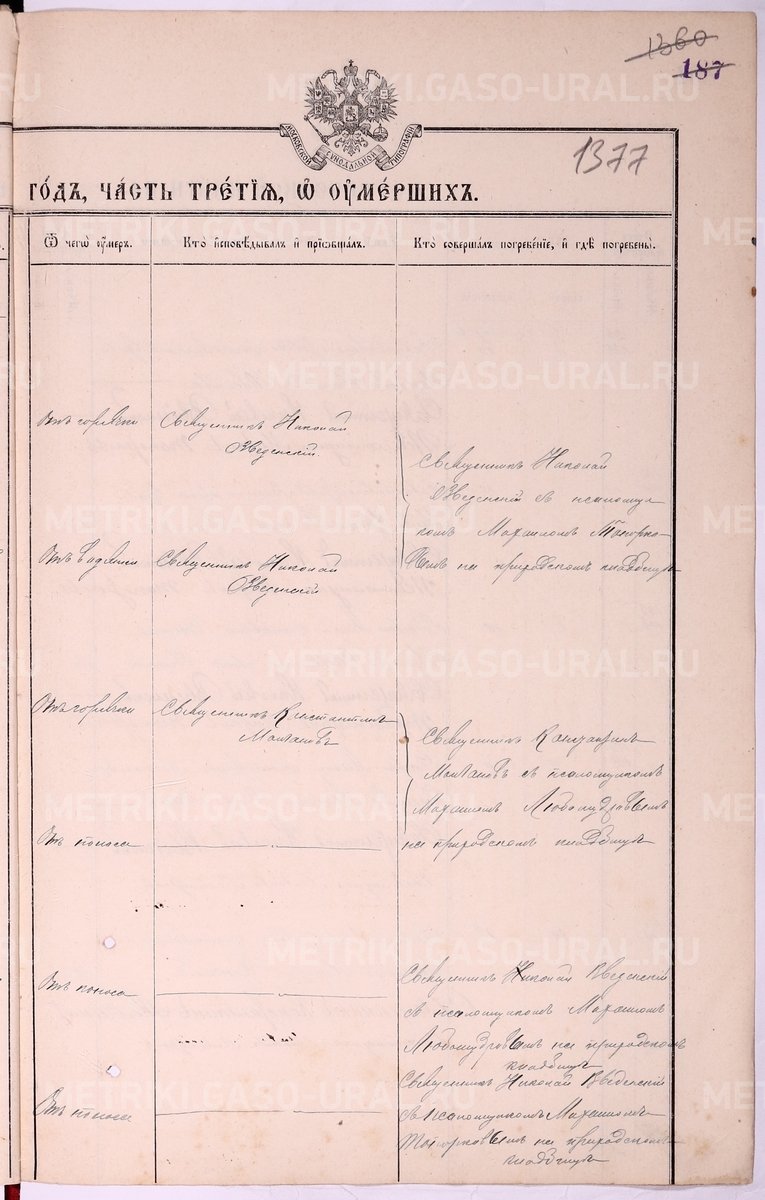 1360
187
1377
МОСКОВСКОЙ СѴНОДАЛЬНОЙ ТИПОГРАФІИ
ГО́ДЪ, ЧА́СТЬ ТРЕ́ТІѦ, Ѡ҆ ОУ҆МЕ́РШИХЪ.
Ѿ чегѡ̀ оу҆́меръ.
Кто̀ и҆сповѣ́дывалъ и҆ прїѡбща́лъ.
Кто̀ соверша́лъ погребе́нїе, и҆ гдѣ̀ погребены̀.
Отъ горячки
Священникъ Николай
Введенскій.
Священникъ Николай
Введенскій съ псаломщи
комъ Маркомъ Топорко
вымъ на приходскомъ кладбищѣ
Отъ водянки
Священникъ Николай
Введенскій
Отъ горячки
Священникъ Константинъ
Молчановъ
Священникъ Константинъ
Молчановъ съ псаломщикомъ
Любомудровымъ
на приходскомъ кладбищѣ
Отъ поноса
Отъ поноса
Священникъ Николай Введенскій
съ псаломщикомъ
Любомудровымъ на приходскомъ
кладбищѣ
Отъ поноса
Священникъ Николай Введенскій
съ псаломщикомъ
Топорковымъ на приходскомъ
кладбищѣ
METRIKI.GASO-URAL.RU